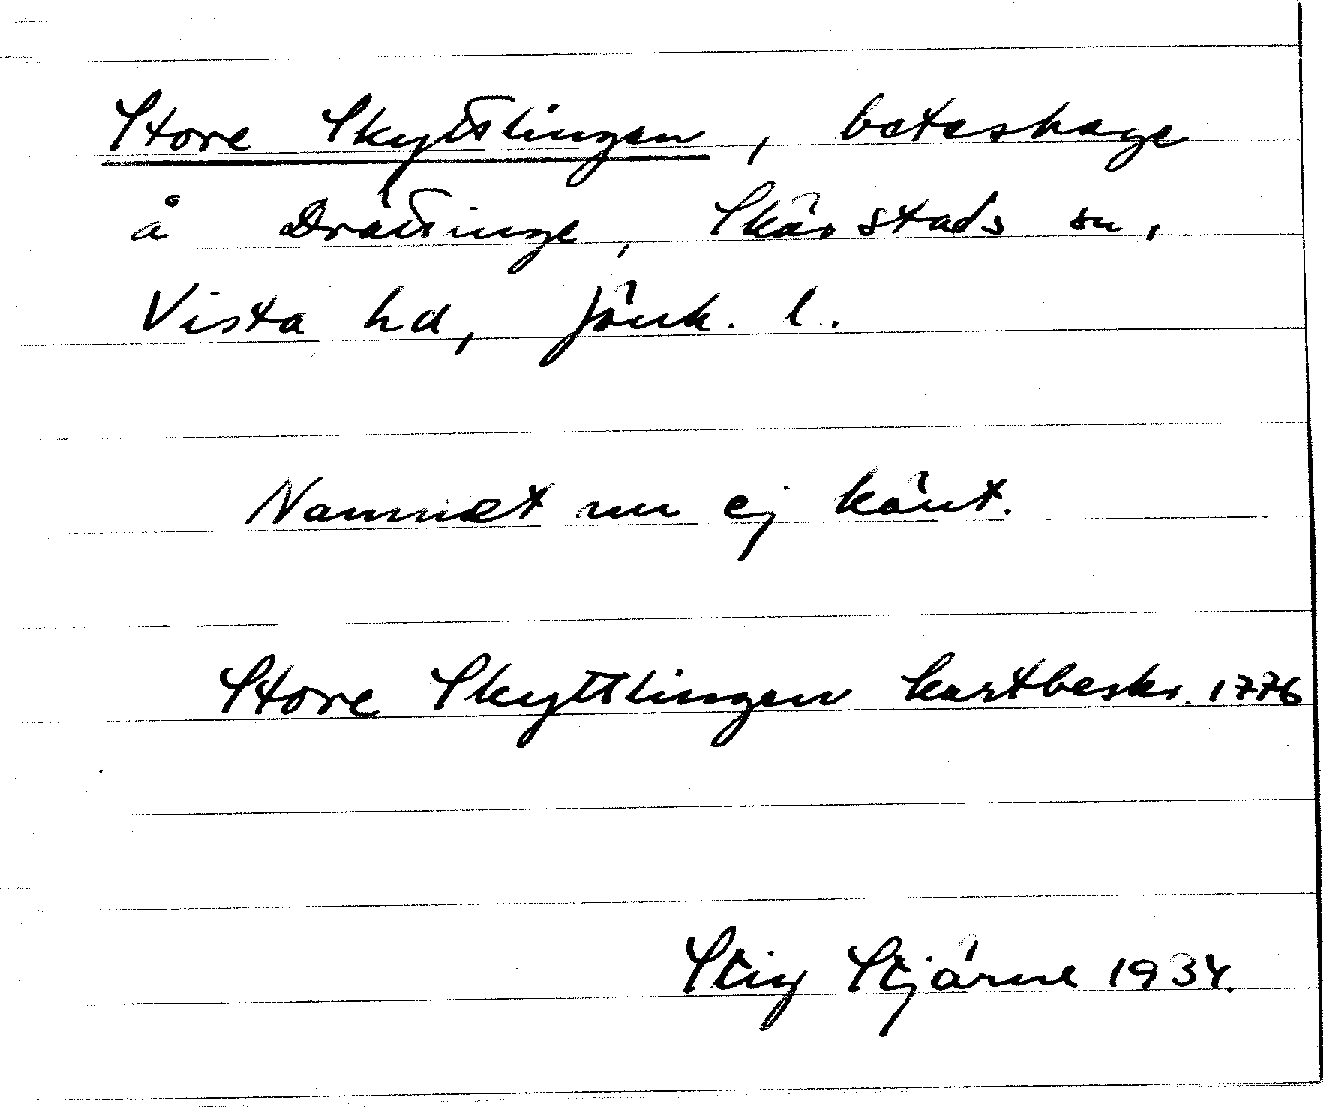 Store Skyttlingen, beteshage
å Drättinge, Skärstads sn,
Vista hd, Jönk. l.
Namnet nu ej känt.
Store Skyttlingen kartbeskr. 1776
Stig Stjärne 1934.